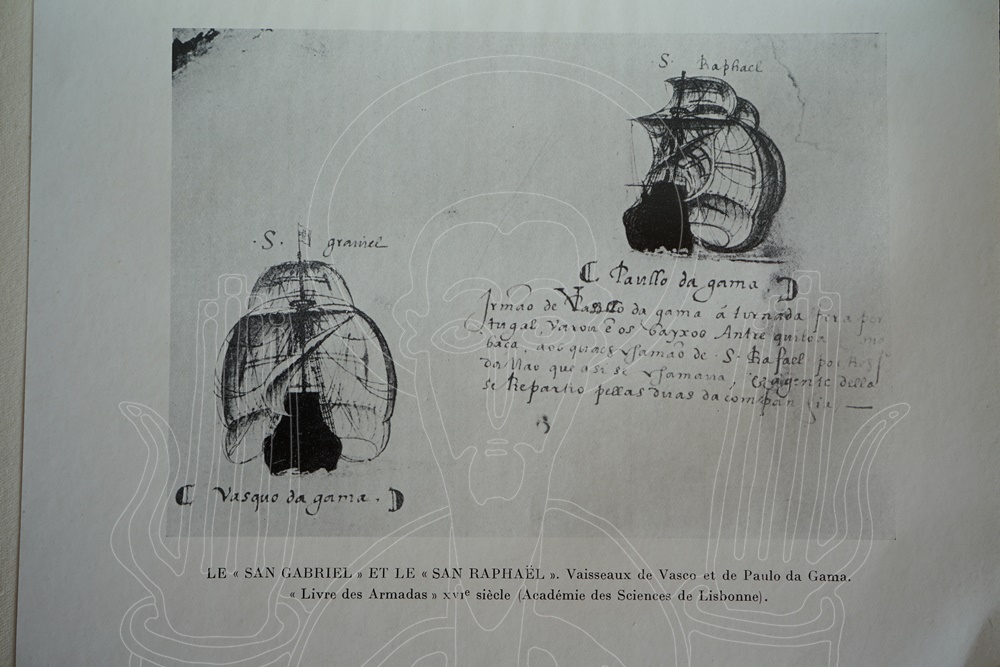 S. Raphael
Paullo da gama
Irmão de Vasco da gama á tornada pera por
tugal, varou e os bayxos Antre quiloa
baça, aos quaes chamão de S. Rafael por
da Nao que asi se chamaua, a gente della
se Repartio pellas duas da companhia
S. graviel
Vasquo da gama.
LE « SAN GABRIEL » ET LE « SAN RAPHAËL ». Vaisseaux de Vasco et de Paulo da Gama.
« Livre des Armadas » XVIe siècle (Académie des Sciences de Lisbonne).